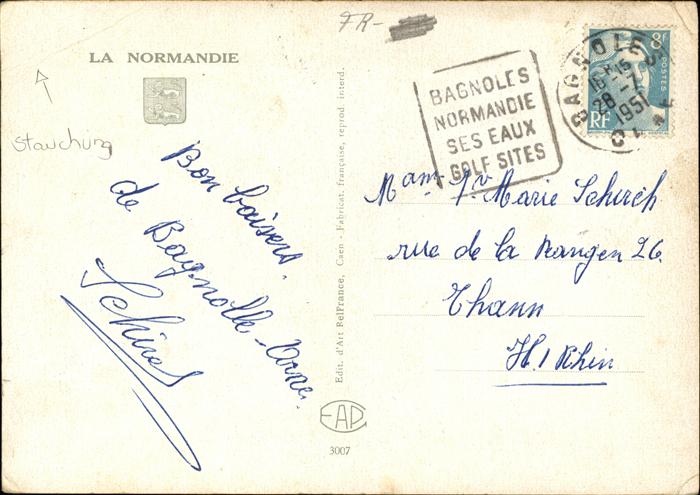 FR-
LA NORMANDIE
Stauchung
Bon baisers.
de Bagnolle-Orne.
Edit. d'Art RelFrance, Caen - Fabricat. française, reprod. interd.
EAD
3007
BAGNOLES
NORMANDIE
SES EAUX
GOLF SITES
BAGNOLES
16 H 15
28 - 7
1951
8f
POSTES
RF
Mam Vv Marie Schirch
rue de la Rangen 26.
Thann
H./Rhin